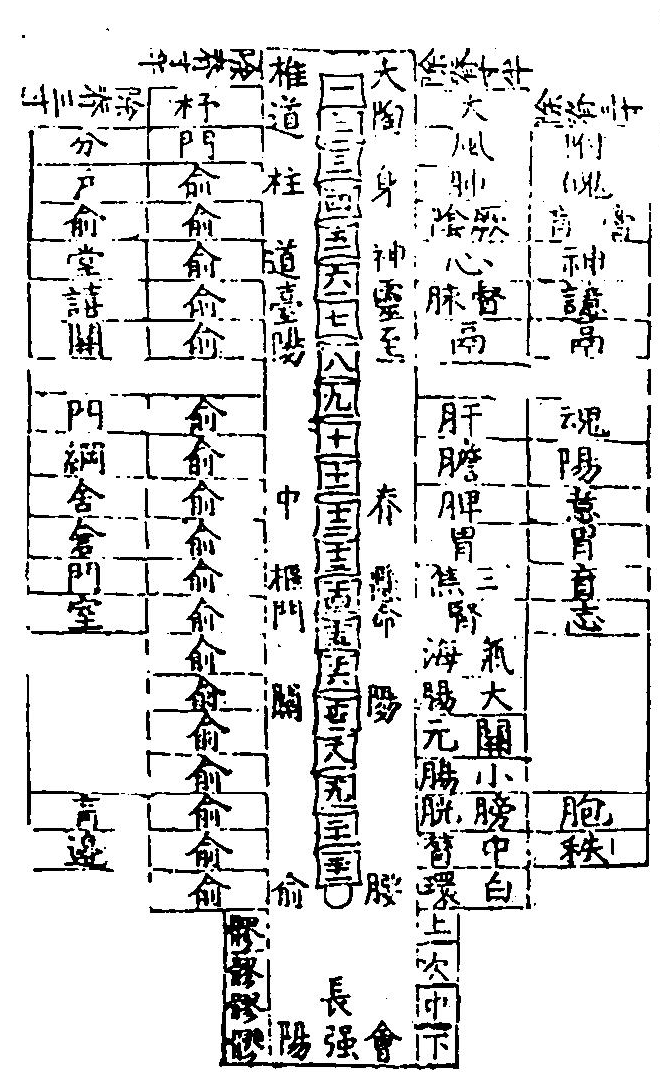 除脊三寸
附
魄
膏肓
神
譩
鬲
魂
陽
意
胃
肓
志
胞
秩
除脊寸半
大
風
肺
厥陰
心
督脉
鬲
肝
膽
脾
胃
三焦
腎
氣海
大腸
關元
小腸
膀胱
中膂
白環
上
次
中
下
大
陶
身
神
靈
至
脊
懸
命
陽
腰
會
一
二
三
四
五
六
七
八
九
十
十一
十二
十三
十四
十五
十六
十七
十八
十九
二十
廿一
長
强
椎
道
柱
道
臺
陽
中
樞
門
關
俞
陽
除脊寸半
杼
門
俞
俞
俞
俞
俞
俞
俞
俞
俞
俞
俞
俞
俞
俞
俞
俞
俞
俞
髎
髎
髎
髎
除脊三寸
分
戶
俞
堂
譆
關
門
綱
舍
倉
門
室
肓
邊